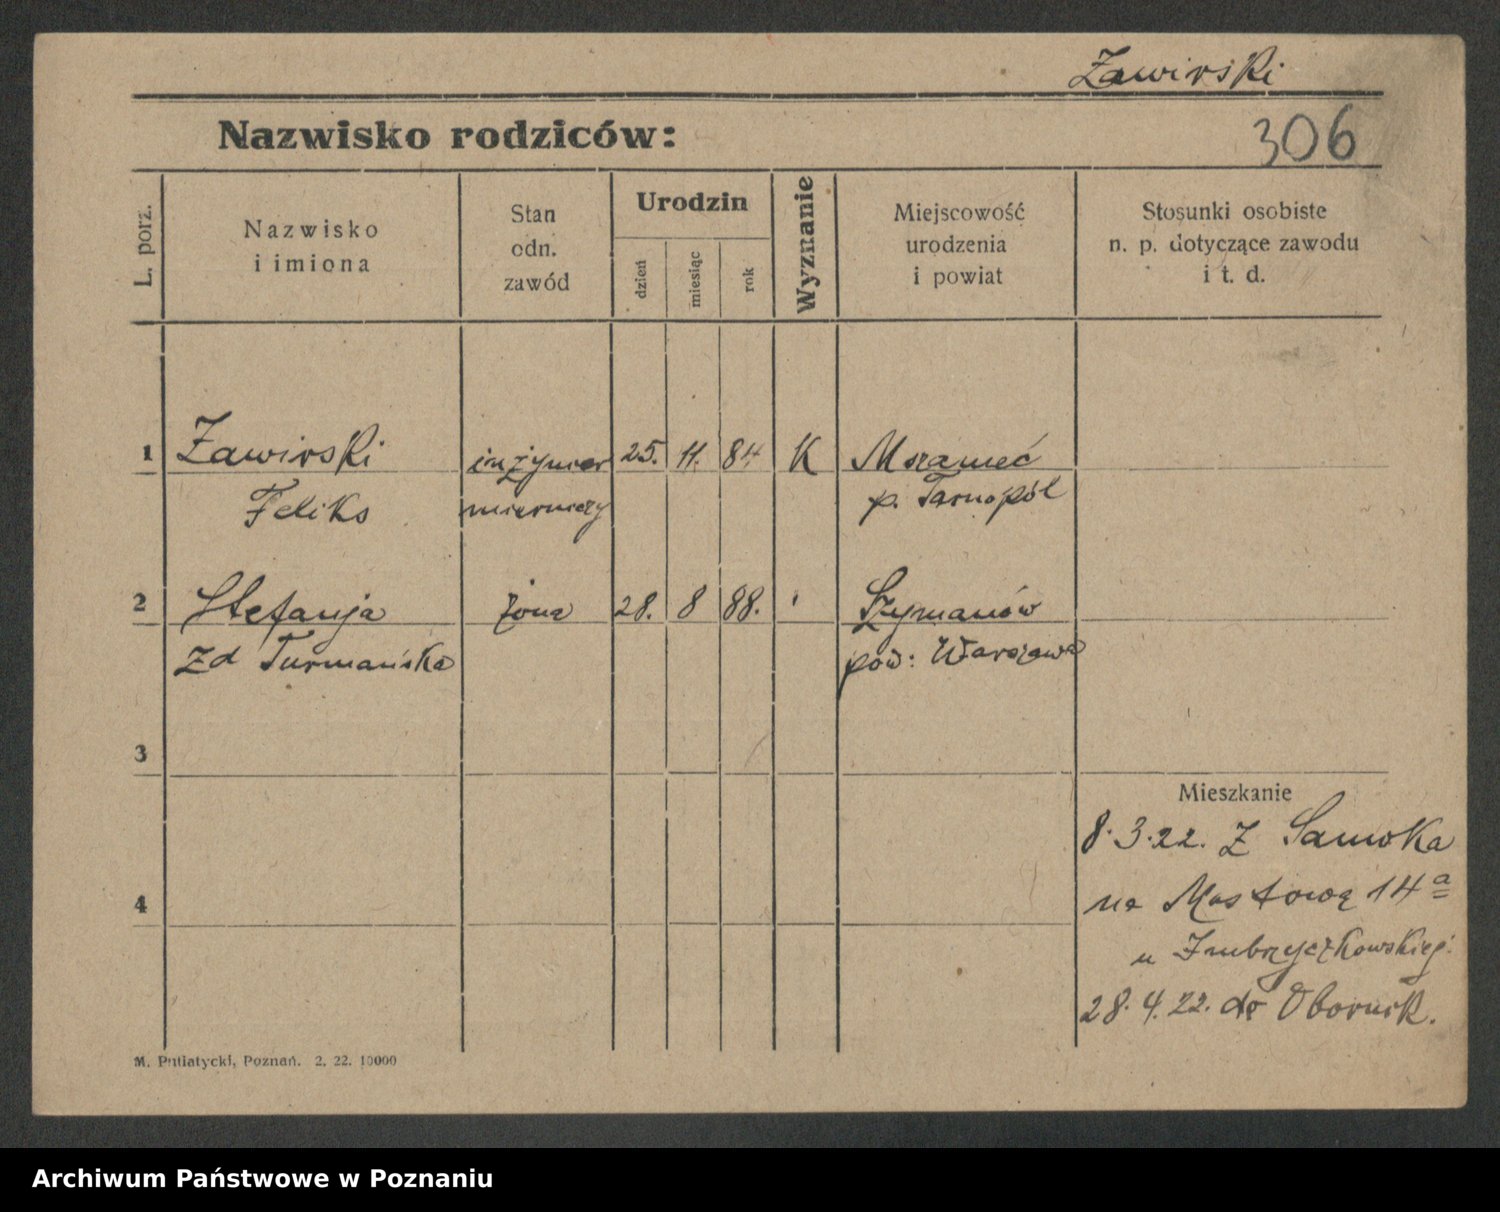 Zawirski
306
Nazwisko rodziców:
L. porz.
Nazwisko
i imiona
Stan
odn.
zawód
Urodzin
dzień
miesiąc
rok
Wyznanie
Miejscowość
urodzenia
i powiat
Stosunki osobiste
n. p. dotyczące zawodu
i t. d.
1 Zawirski inżynier 25. 11. 84 K
Feliks mierniczy p. Tarnopól
2 Stefanja żona 28. 8 88. ' Szymanów
zd Turmańska pow: Warszawa
3
Mieszkanie
8.3.22. Z Sanoka
4
na Mostową 14a
u
28.4.22. do Obornik.
M. Putiatycki, Poznań. 2. 22. 10000
Archiwum Państwowe w Poznaniu